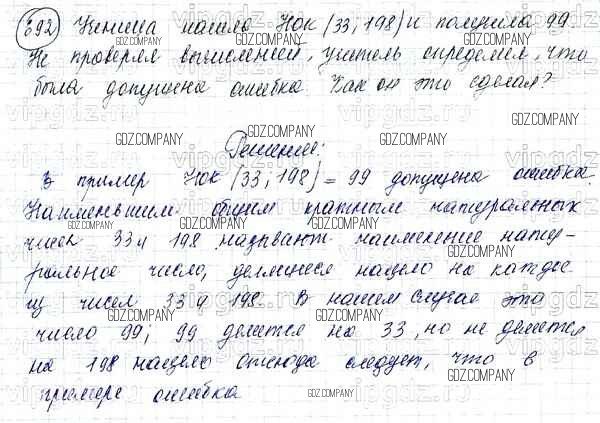 692) Ученица нашла НОК (33, 198) и получила 99.
Не проверяя вычислений, учитель определил, что
была допущена ошибка. Как он это сделал?
Решение:
В пример НОК (33, 198) = 99 допущена ошибка.
Наименьшим общим кратным натуральных
чисел 33 и 198 называют наименьшее нату-
ральное число, делящееся нацело на каждое
из чисел 33 и 198. В нашем случае это
число 99; 99 делится на 33, но не делится
на 198 нацело. Отсюда следует, что в
примере ошибка
GDZ.COMPANY
vipgdz.ru